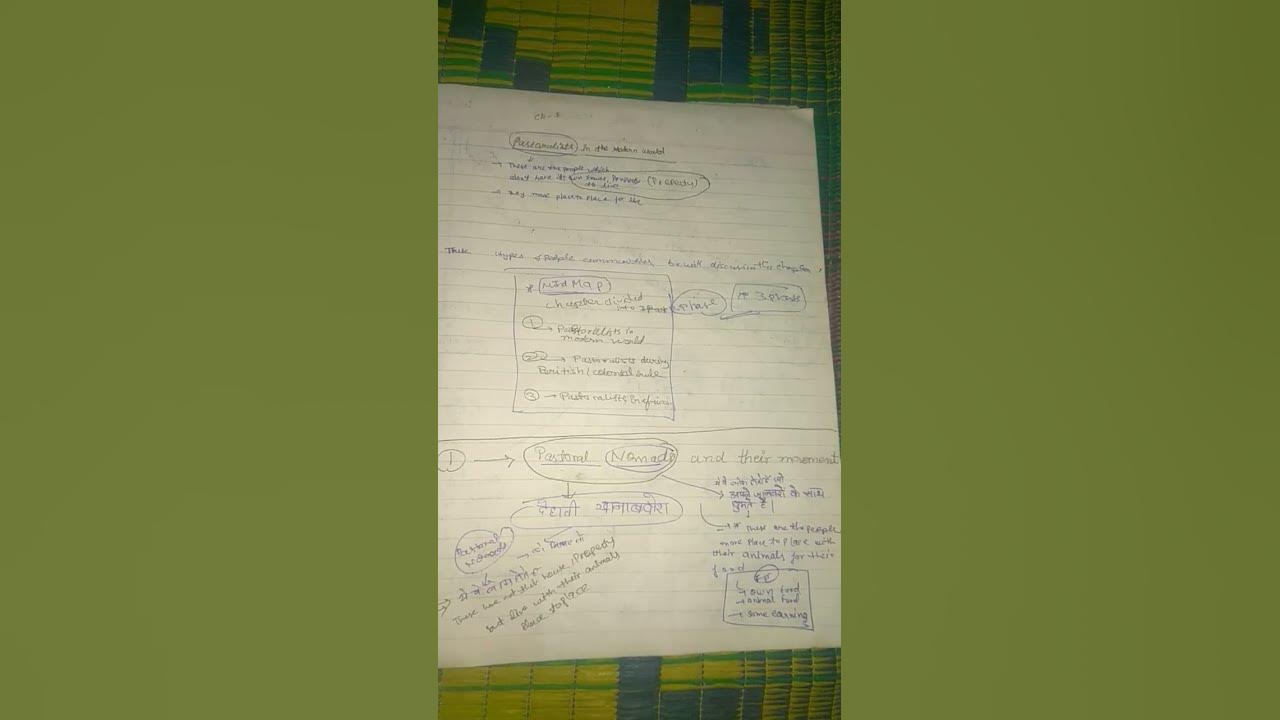 Ch-5
Pastoralists in the Modern World
→ These are the people which
don't have its own house, Property (Property)
to live
→ They move place to place for the
types of People communities be will discuss in this chapter,
* Mind Map
Chapter divided
into 3 part phase * 3 phase
① → Pastoralists in
modern world
② → Pastoralists during
British / colonial rule
③ → Pastoralists in
① → Pastoral Nomads and their movement
देहाती खानाबदोश
अपने जानवरों के साथ
घुमते हैं।
→ * These are the people
move place to place with
their animals for their
food
→ own food
→ animal food
→ some earning
Pastoral
Nomads
These have not their house, Property
but live with their animals
place to place